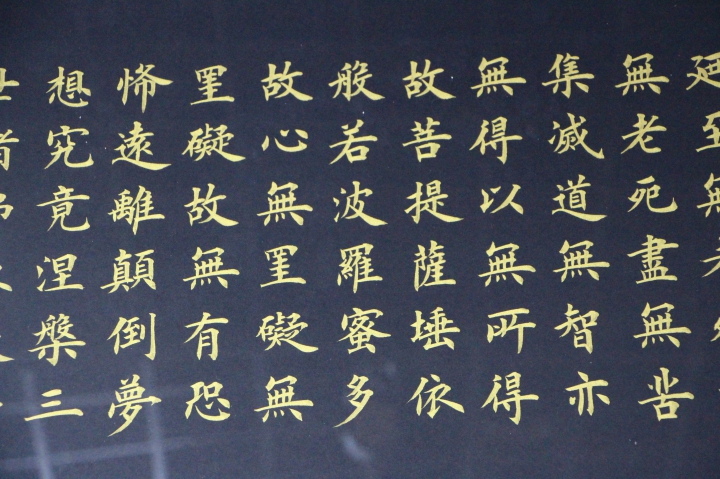 廼至無老
無老死盡無苦
集滅道無智亦
無得以無所得
故菩提薩埵依
般若波羅蜜多
故心無罣礙無
罣礙故無有恐
怖遠離顛倒夢
想究竟涅槃三